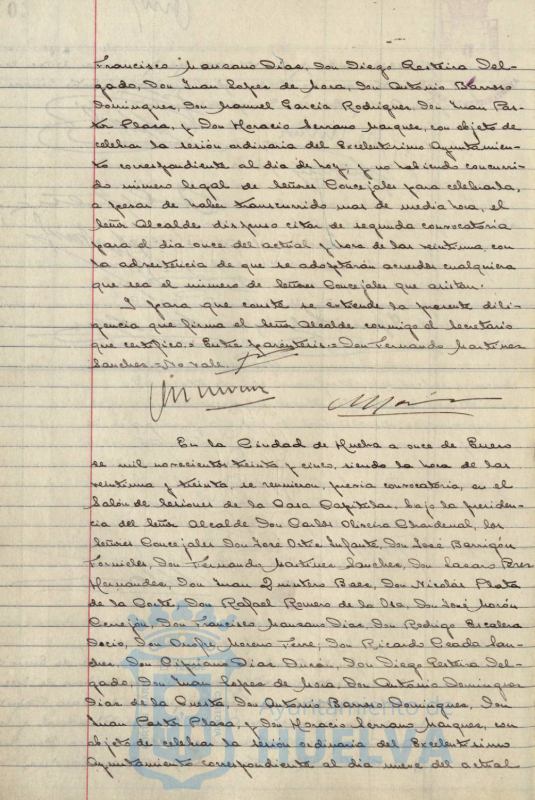 Francisco Manzano Díaz, Don Diego Reiteira Del-
gado, Don Juan Lopez de Mora, Don Antonio Barroso
Dominguez, Don Manuel García Rodriguez, Don Juan Pas-
tor Plaza, y Don Horacio Serrano Marquez, con objeto de
celebrar la sesión ordinaria del Excelentísimo Ayuntamien-
to correspondiente al día de hoy, y no habiendo concurri-
do número legal de Señores Concejales para celebrarla,
a pesar de haber transcurrido mas de media hora, el
Señor Alcalde dispuso citar de segunda convocatoria
para el día once del actual y hora de las veintiuna, con
la advertencia de que se adoptarán acuerdos cualquiera
que sea el número de Señores Concejales que asistan.
Y para que conste se extiende la presente dili-
gencia que firma el Señor Alcalde conmigo el Secretario
que certifico.= Entre parentesis= Don Fernando Martinez
Sanchez= No vale.
En la Ciudad de Huelva a once de Enero
de mil novecientos treinta y cinco, siendo la hora de las
veintiuna y treinta, se reunieron, previa convocatoria, en el
Salón de Sesiones de la Casa Capitular, bajo la presiden-
cia del Señor Alcalde Don Carlos Oliveira Chardenal, los
Señores Concejales Don José Ortiz Infante, Don José Barrigón
Fornieles, Don Fernando Martinez Sanchez, Don Lazaro Perez
Hernandez, Don Juan Quintero Baez, Don Nicolás Plata
de la Corte, Don Rafael Romero de la Osa, Don José Morón
Cerrejón, Don Francisco Manzano Díaz, Don Rodrigo Escalera
Docio, Don Onofre Moreno Ferre, Don Ricardo Ceada San-
chez, Don Cipriano Díaz Durán, Don Diego Reiteira Del-
gado, Don Juan Lopez de Mora, Don Antonio Dominguez
Díaz de la Cuesta, Don Antonio Barroso Dominguez, Don
Juan Pastor Plaza, y Don Horacio Serrano Marquez, con
objeto de celebrar la sesión ordinaria del Excelentísimo
Ayuntamiento correspondiente al día nueve del actual
Ayuntamiento de
HUELVA